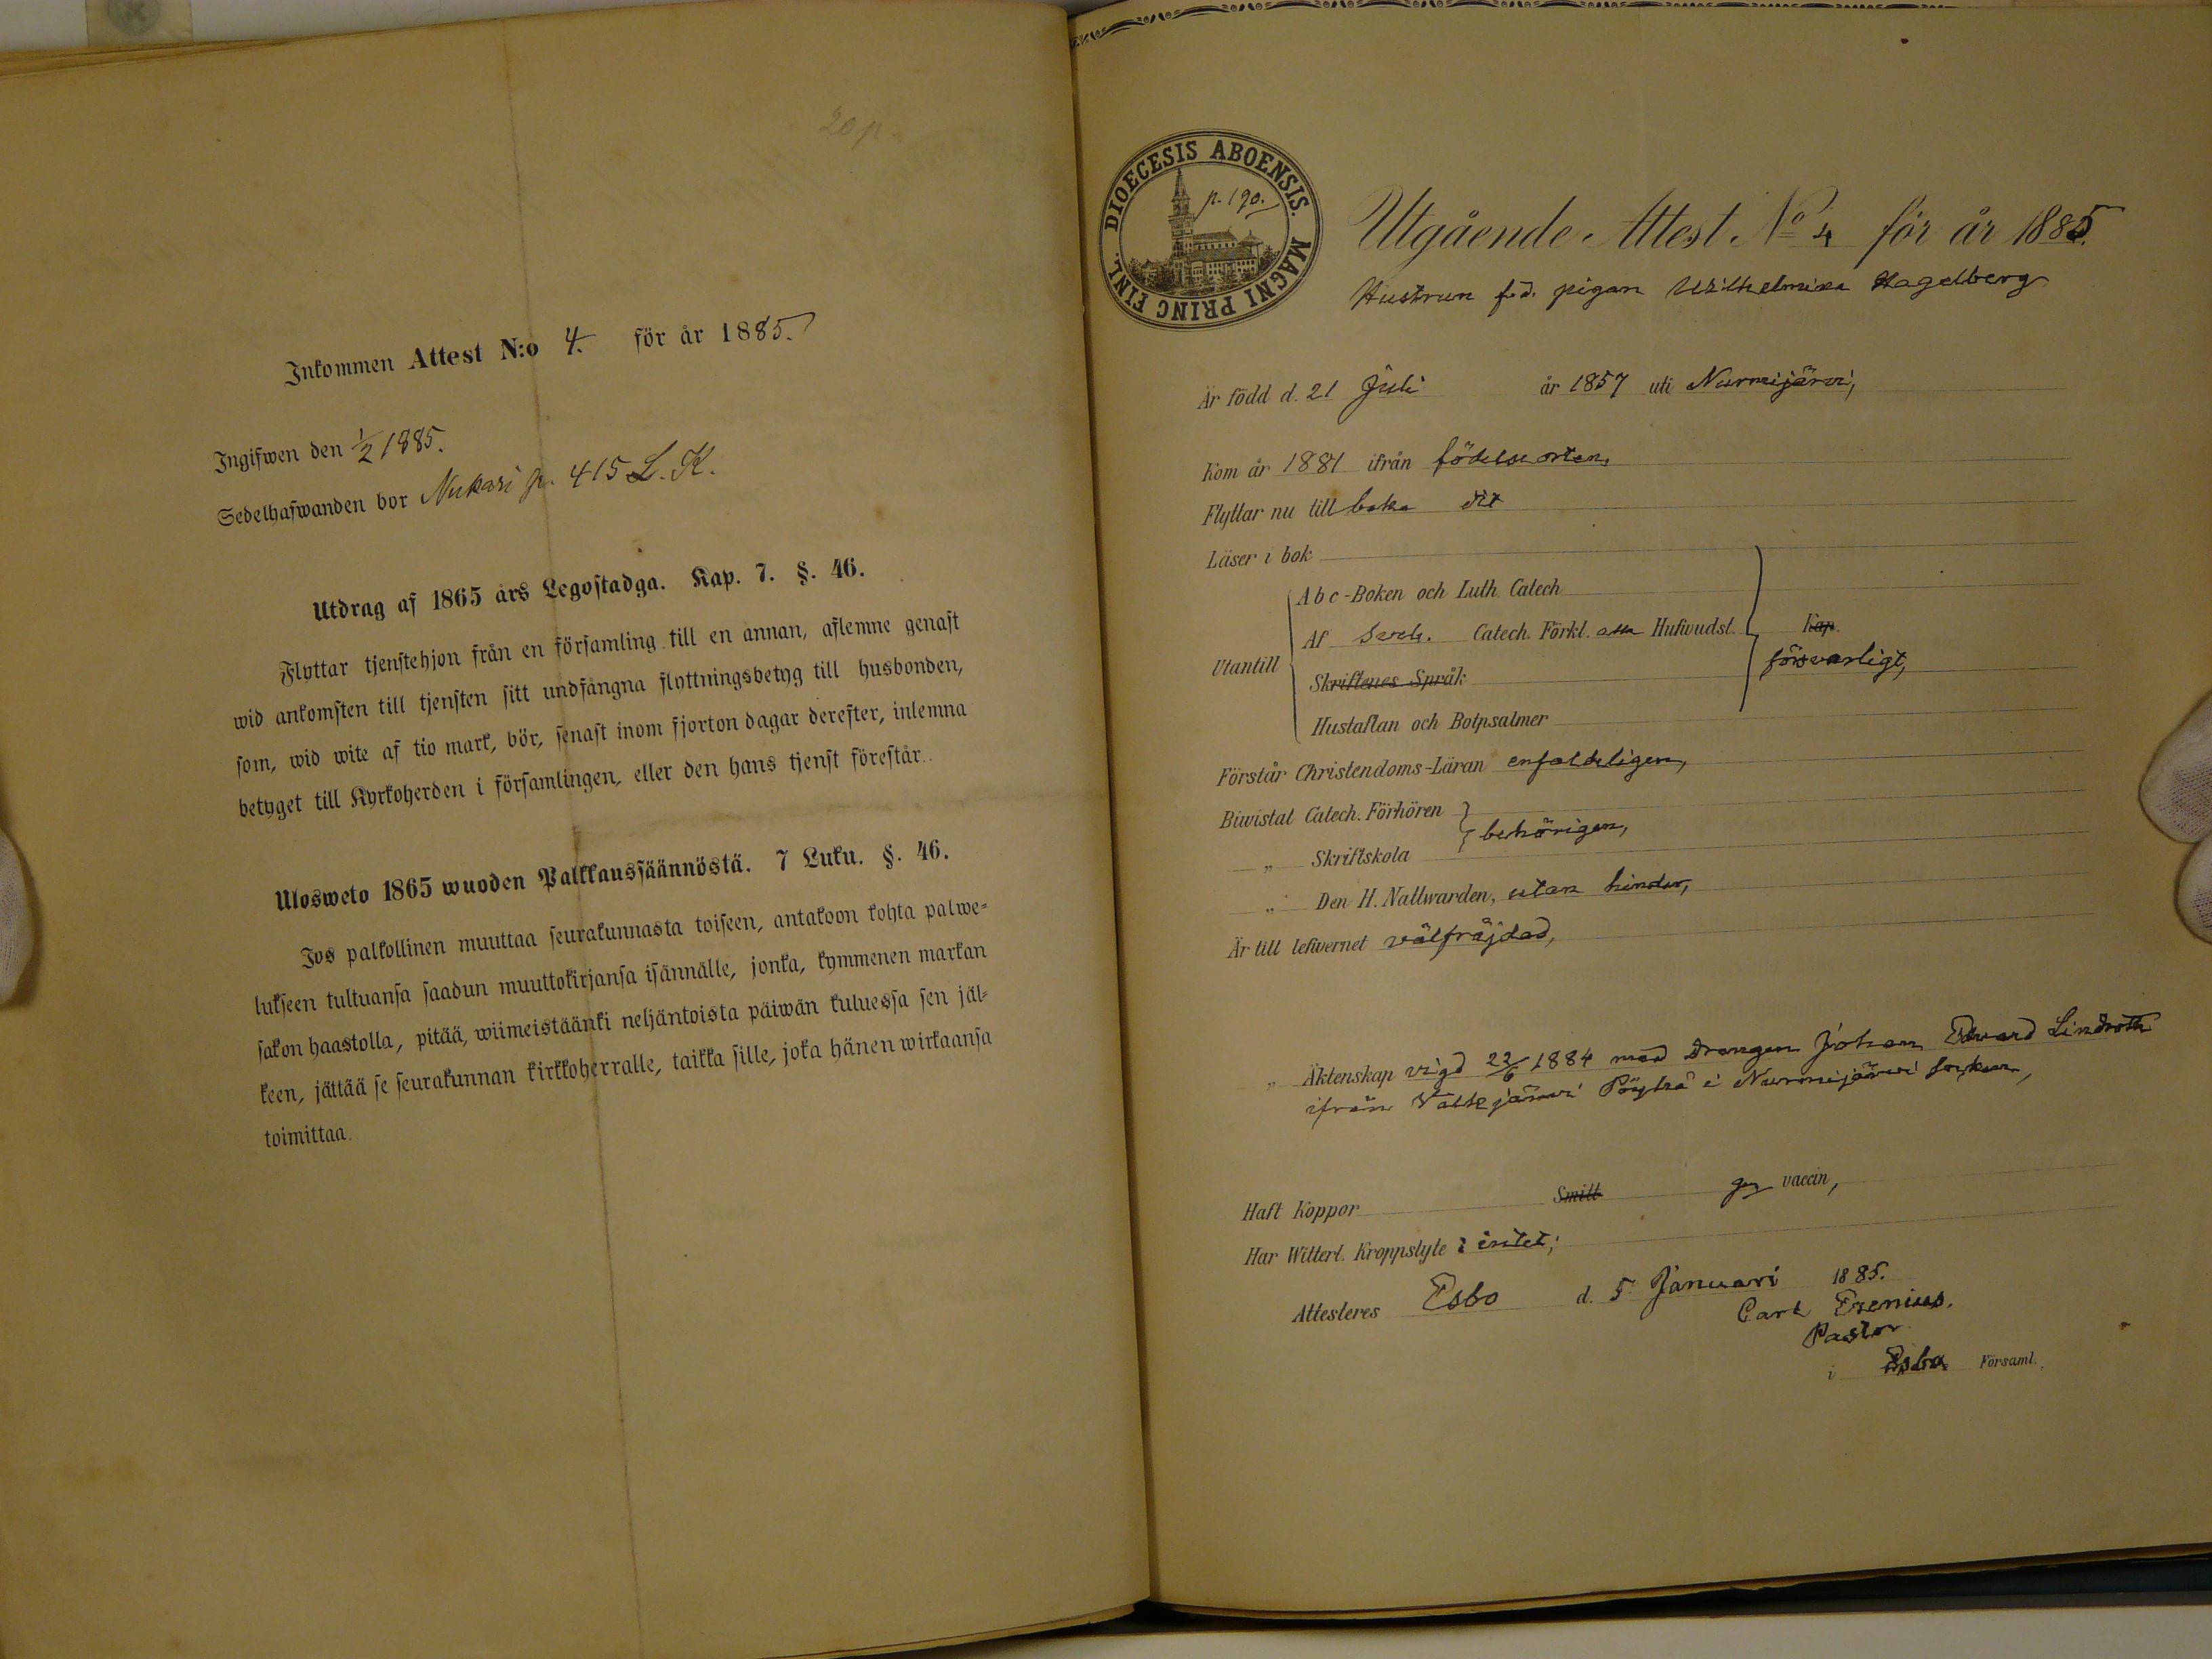 20 p.
Inkommen Attest N:o 4. för år 1885.
Ingifwen den 1/2 1885.
Sedelhafwanden bor Nukari p. 415 L. K.
Utdrag af 1865 års Legostadga. Kap. 7. §. 46.
Flyttar tjenstehjon från en församling till en annan, aflemne genast
wid ankomsten till tjensten sitt undfångna flyttningsbetyg till husbonden,
som, wid wite af tio mark, bör, senast inom fjorton dagar derefter, inlemna
betyget till Kyrkoherden i församlingen, eller den hans tjenst förestår.
Ulosweto 1865 wuoden Palkkaussäännöstä. 7 Luku. §. 46.
Jos palkollinen muuttaa seurakunnasta toiseen, antakoon kohta palwe-
lukseen tultuansa saadun muuttokirjansa isännälle, jonka, kymmenen markan
sakon haastolla, pitää, wiimeistäänki neljäntoista päiwän kuluessa sen jäl-
keen, jättää se seurakunnan kirkkoherralle, taikka sille, joka hänen wirkaansa
toimittaa.
DIOECESIS ABOENSIS. MAGNI PRINC FINL.
p. 190.
Utgående Attest No 4 för år 1885.
Hustrun föd. pigan Wilhelmina Hagelberg
Är född d. 21 Juli år 1857 uti Nurmijärvi,
Kom år 1881 ifrån födelseorten,
Flyttar nu till baka dit
Läser i bok
Abc-Boken och Luth. Catech
Utantill
Af Sveb. Catech. Förkl. Hufwudst. Kap.
försvarligt,
Skriftenes Språk
Hustaflan och Botpsalmer
Förstår Christendoms-Läran enfaldeligen,
Biwistat Catech. Förhören
behörigen,
„ Skriftskola
„ Den H. Nattwarden, utan hinder,
Är till lefwernet välfräjdad,
„ Äktenskap vigd 22/6 1884 med drängen Johan Edvard Lindroth
ifrån Valkjärvi Pöytä i Nurmijärvi socken,
Haft Koppor Smitt gm vaccin,
Har Witterl. Kroppslyte : intet;
Attesteres Esbo d. 5 Januari 1885.
Carl Esenius.
Pastor
i Esbo Församl.